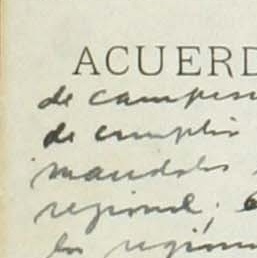 ACUERD
de campesi
de cumplir
mandales
regional; 
la región